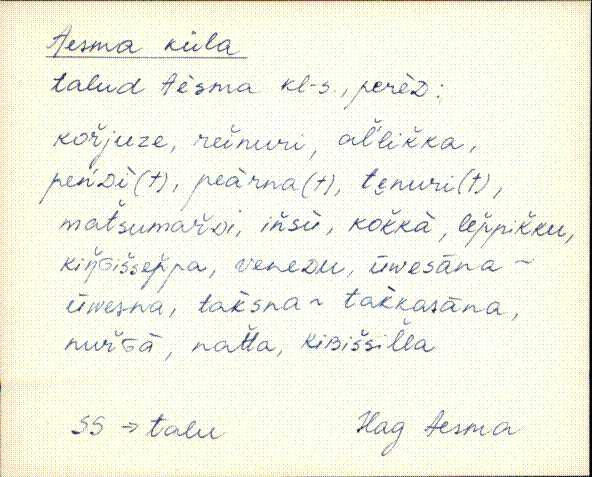 Aesma küla
talud Aèsma kl-s., perèD:
kořjuze, reĭnuri, al̆likka,
peńDì(†), peàrna(†), tęnuri(†),
mat̆sumařDi, iňsù, kok̆kà, lep̆pik̆ku,
kiŋ̆Giššep̆pa, veneDu, ūwesāna ~
ūwesna, tak̀sna ~ tak̀kasāna,
nuřGà, nat̆ta, kiBiššil̆la
SS → talu Hag Aesma